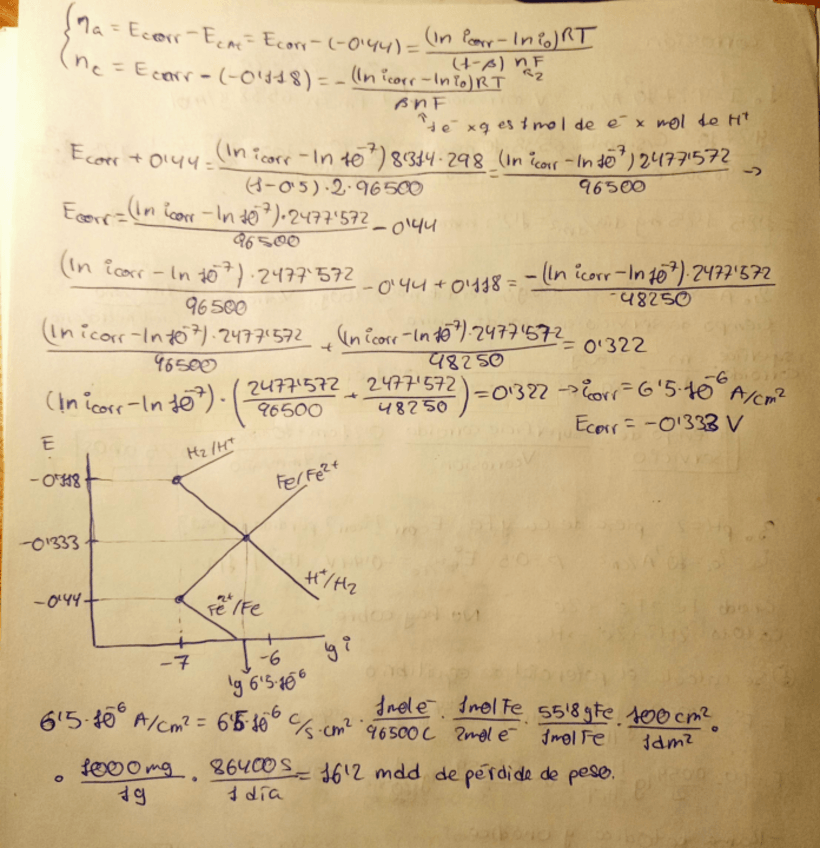 ηa = Ecorr - Ecat = Ecorr - (-0'44) = (ln icorr - ln i0)RT / (1-β) nF
ηc = Ecorr - (-0'118) = - (ln icorr - ln i0)RT / βnF
1e⁻ xq es 1 mol de e⁻ x mol de H⁺
Ecorr + 0'44 = (ln icorr - ln 10⁻⁷) 8'314·298 / (1-0'5)·2·96500 = (ln icorr - ln 10⁻⁷) 2477'572 / 96500 →
Ecorr = (ln icorr - ln 10⁻⁷)·2477'572 / 96500 - 0'44
(ln icorr - ln 10⁻⁷)·2477'572 / 96500 - 0'44 + 0'118 = -(ln icorr - ln 10⁻⁷)·2477'572 / 48250
(ln icorr - ln 10⁻⁷)·2477'572 / 96500 + (ln icorr - ln 10⁻⁷)·2477'572 / 48250 = 0'322
(ln icorr - ln 10⁻⁷)·(2477'572 / 96500 + 2477'572 / 48250) = 0'322 → icorr = 6'5·10⁻⁶ A/cm²
Ecorr = -0'333 V
E
H₂/H⁺
-0'118
Fe/Fe²⁺
-0'333
H⁺/H₂
-0'44
Fe²⁺/Fe
-7
-6
lg i
lg 6'5·10⁻⁶
6'5·10⁻⁶ A/cm² = 6'5·10⁻⁶ C/s·cm² · 1mol e⁻ / 96500C · 1mol Fe / 2mol e⁻ · 55'8 gFe / 1mol Fe · 100 cm² / 1dm² ·
· 1000 mg / 1g · 86400 s / 1 día = 16'2 mdd de pérdida de peso.